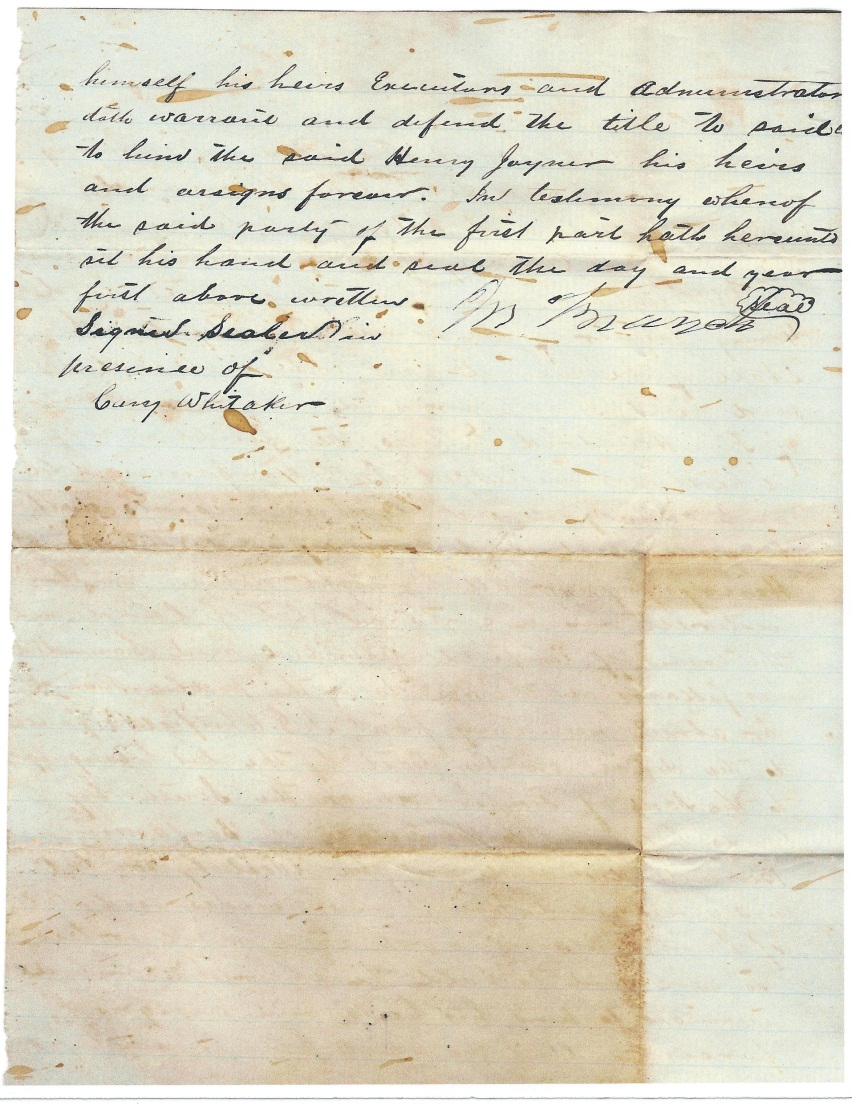 himself his heirs Executors and administrator
doth warrant and defend the title to said
to him the said Henry Joyner his heirs
and assigns forever. In testimony whereof
the said party of the first part hath hereunto
set his hand and seal the day and year
first above written
Branch Seal
Signed Sealed in
presence of
Cary Whitaker